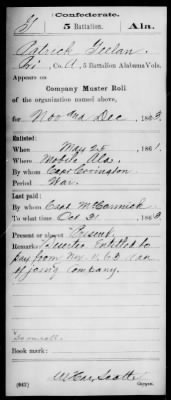 Confederate.
G 5 Battalion. Ala.
Patrick Geelan
Pri, Co. A, 5 Battalion Alabama Vols.
Appears on
Company Muster Roll
of the organization named above,
for Nov and Dec, 1863.
Enlisted:
When May 25, 1861.
Where Mobile Ala.
By whom Capt Covington
Period War.
Last paid:
By whom Capt. McCormick
To what time Oct 31, 1863.
Present or absent Present.
Remarks: Entitled to
pay from Nov. 1, 63
of joining Company.
Book mark:
(642) Copyist.